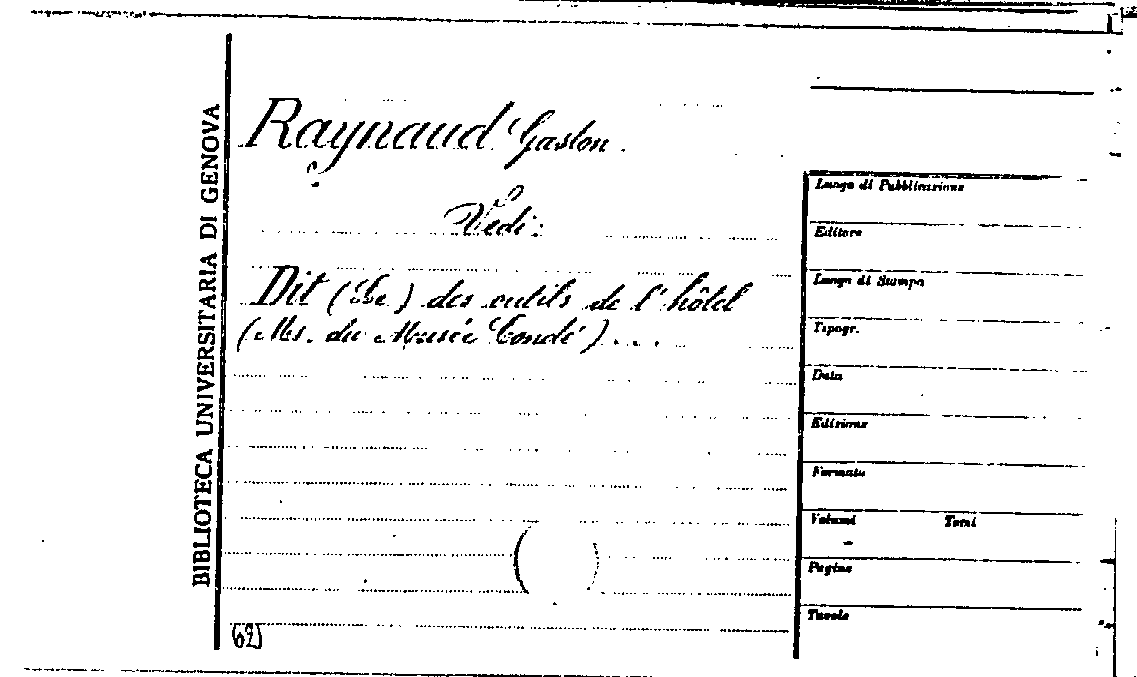 BIBLIOTECA UNIVERSITARIA DI GENOVA
Raynaud Gaston.
Vedi:
Dit (Le) des outils de l'hôtel
(Ms. du Musée Condé) . . .
62)
Luogo di Pubblicazione
Editore
Luogo di Stampa
Tipogr.
Data
Edizione
Formato
Volumi Tomi
Pagine
Tavole